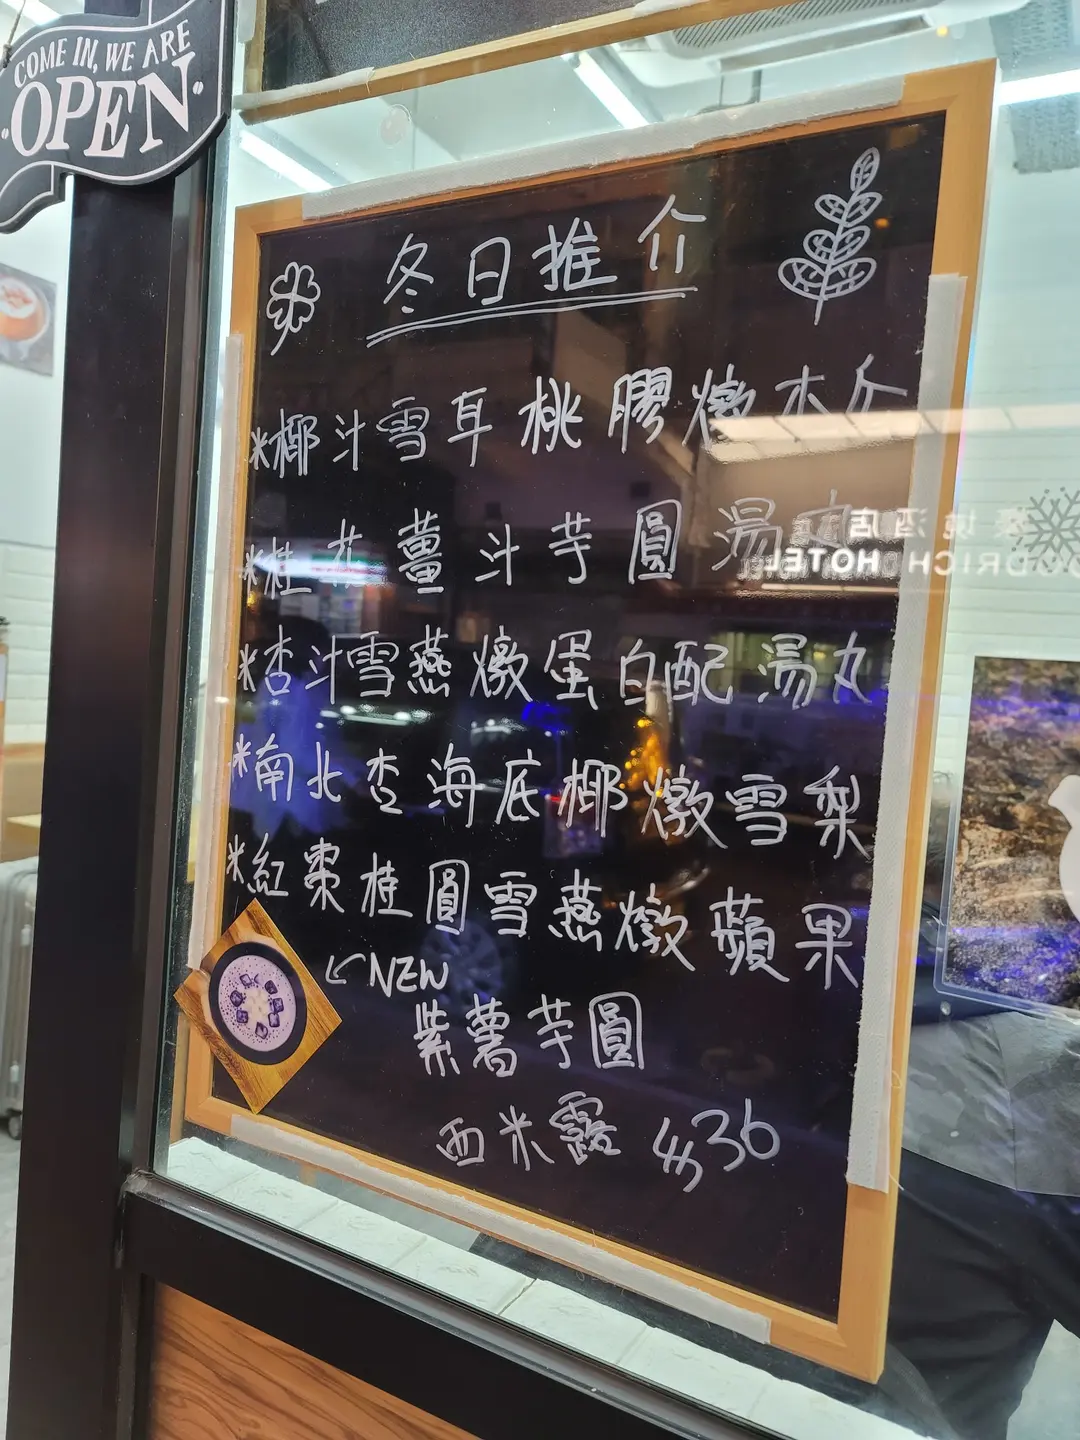 COME IN, WE ARE
OPEN
冬日推介
*椰汁雪耳桃膠燉木瓜
*桂花薑汁芋圓湯丸
*杏汁雪燕燉蛋白配湯丸
*南北杏海底椰燉雪梨
*紅棗桂圓雪燕燉蘋果
NEW
紫薯芋圓
西米露 $36
酒店
DRICH HOTEL